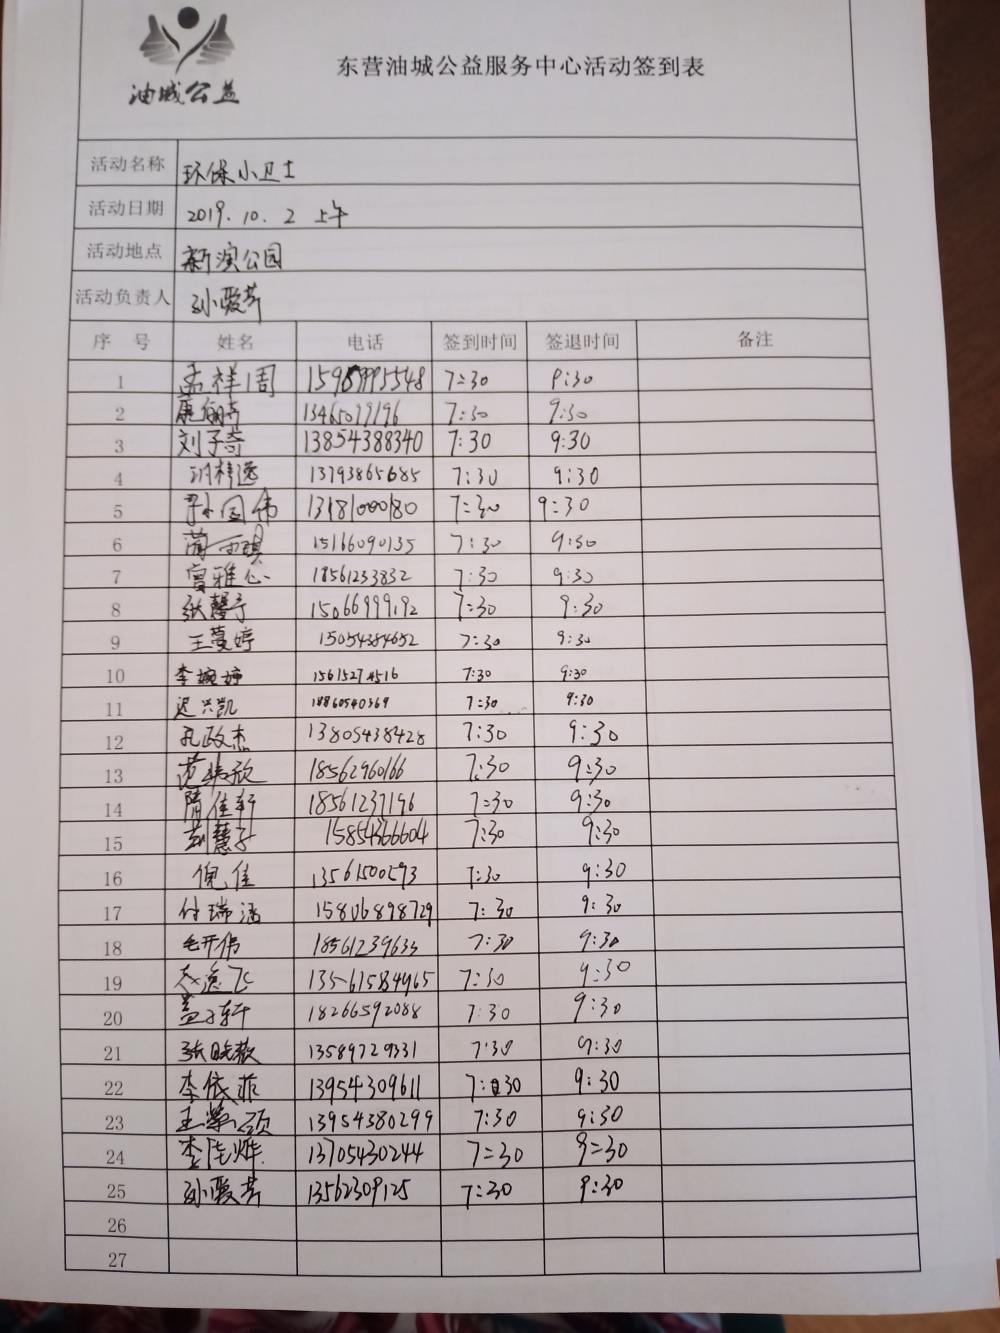 油城公益
东营油城公益服务中心活动签到表
活动名称 环保小卫士
活动日期 2019.10.2 上午
活动地点 新滨公园
活动负责人 孙爱芳
序 号 姓名 电话 签到时间 签退时间 备注
1 孟祥周 7:30 9:30
2 13465079196 7:30 9:30
3 刘子奇 13854388340 7:30 9:30
4 13793865685 7:30 9:30
5 孙国伟 7:30 9:30
6 15166090135 7:30 9:30
7 曾雅心 18561233832 7:30 9:30
8 张馨予 15066999192 7:30 9:30
9 王蔓婷 15054384652 7:30 9:30
10 李婉婷 15615274516 7:30 9:30
11 迟兴凯 18860540369 7:30 9:30
12 孔政杰 13805438428 7:30 9:30
13 18562960166 7:30 9:30
14 隋佳轩 18561237196 7:30 9:30
15 彭慧子 15854366604 7:30 9:30
16 倪佳 13561500293 7:30 9:30
17 付瑞涵 15806898729 7:30 9:30
18 毛开伟 18561239633 7:30 9:30
19 13561584965 7:30 9:30
20 盖子轩 18266592088 7:30 9:30
21 13589729331 7:30 9:30
22 李依菲 13954309611 7:30 9:30
23 13954380299 7:30 9:30
24 13705430244 7:30 9:30
25 孙爱芳 13562309125 7:30 9:30
26
27